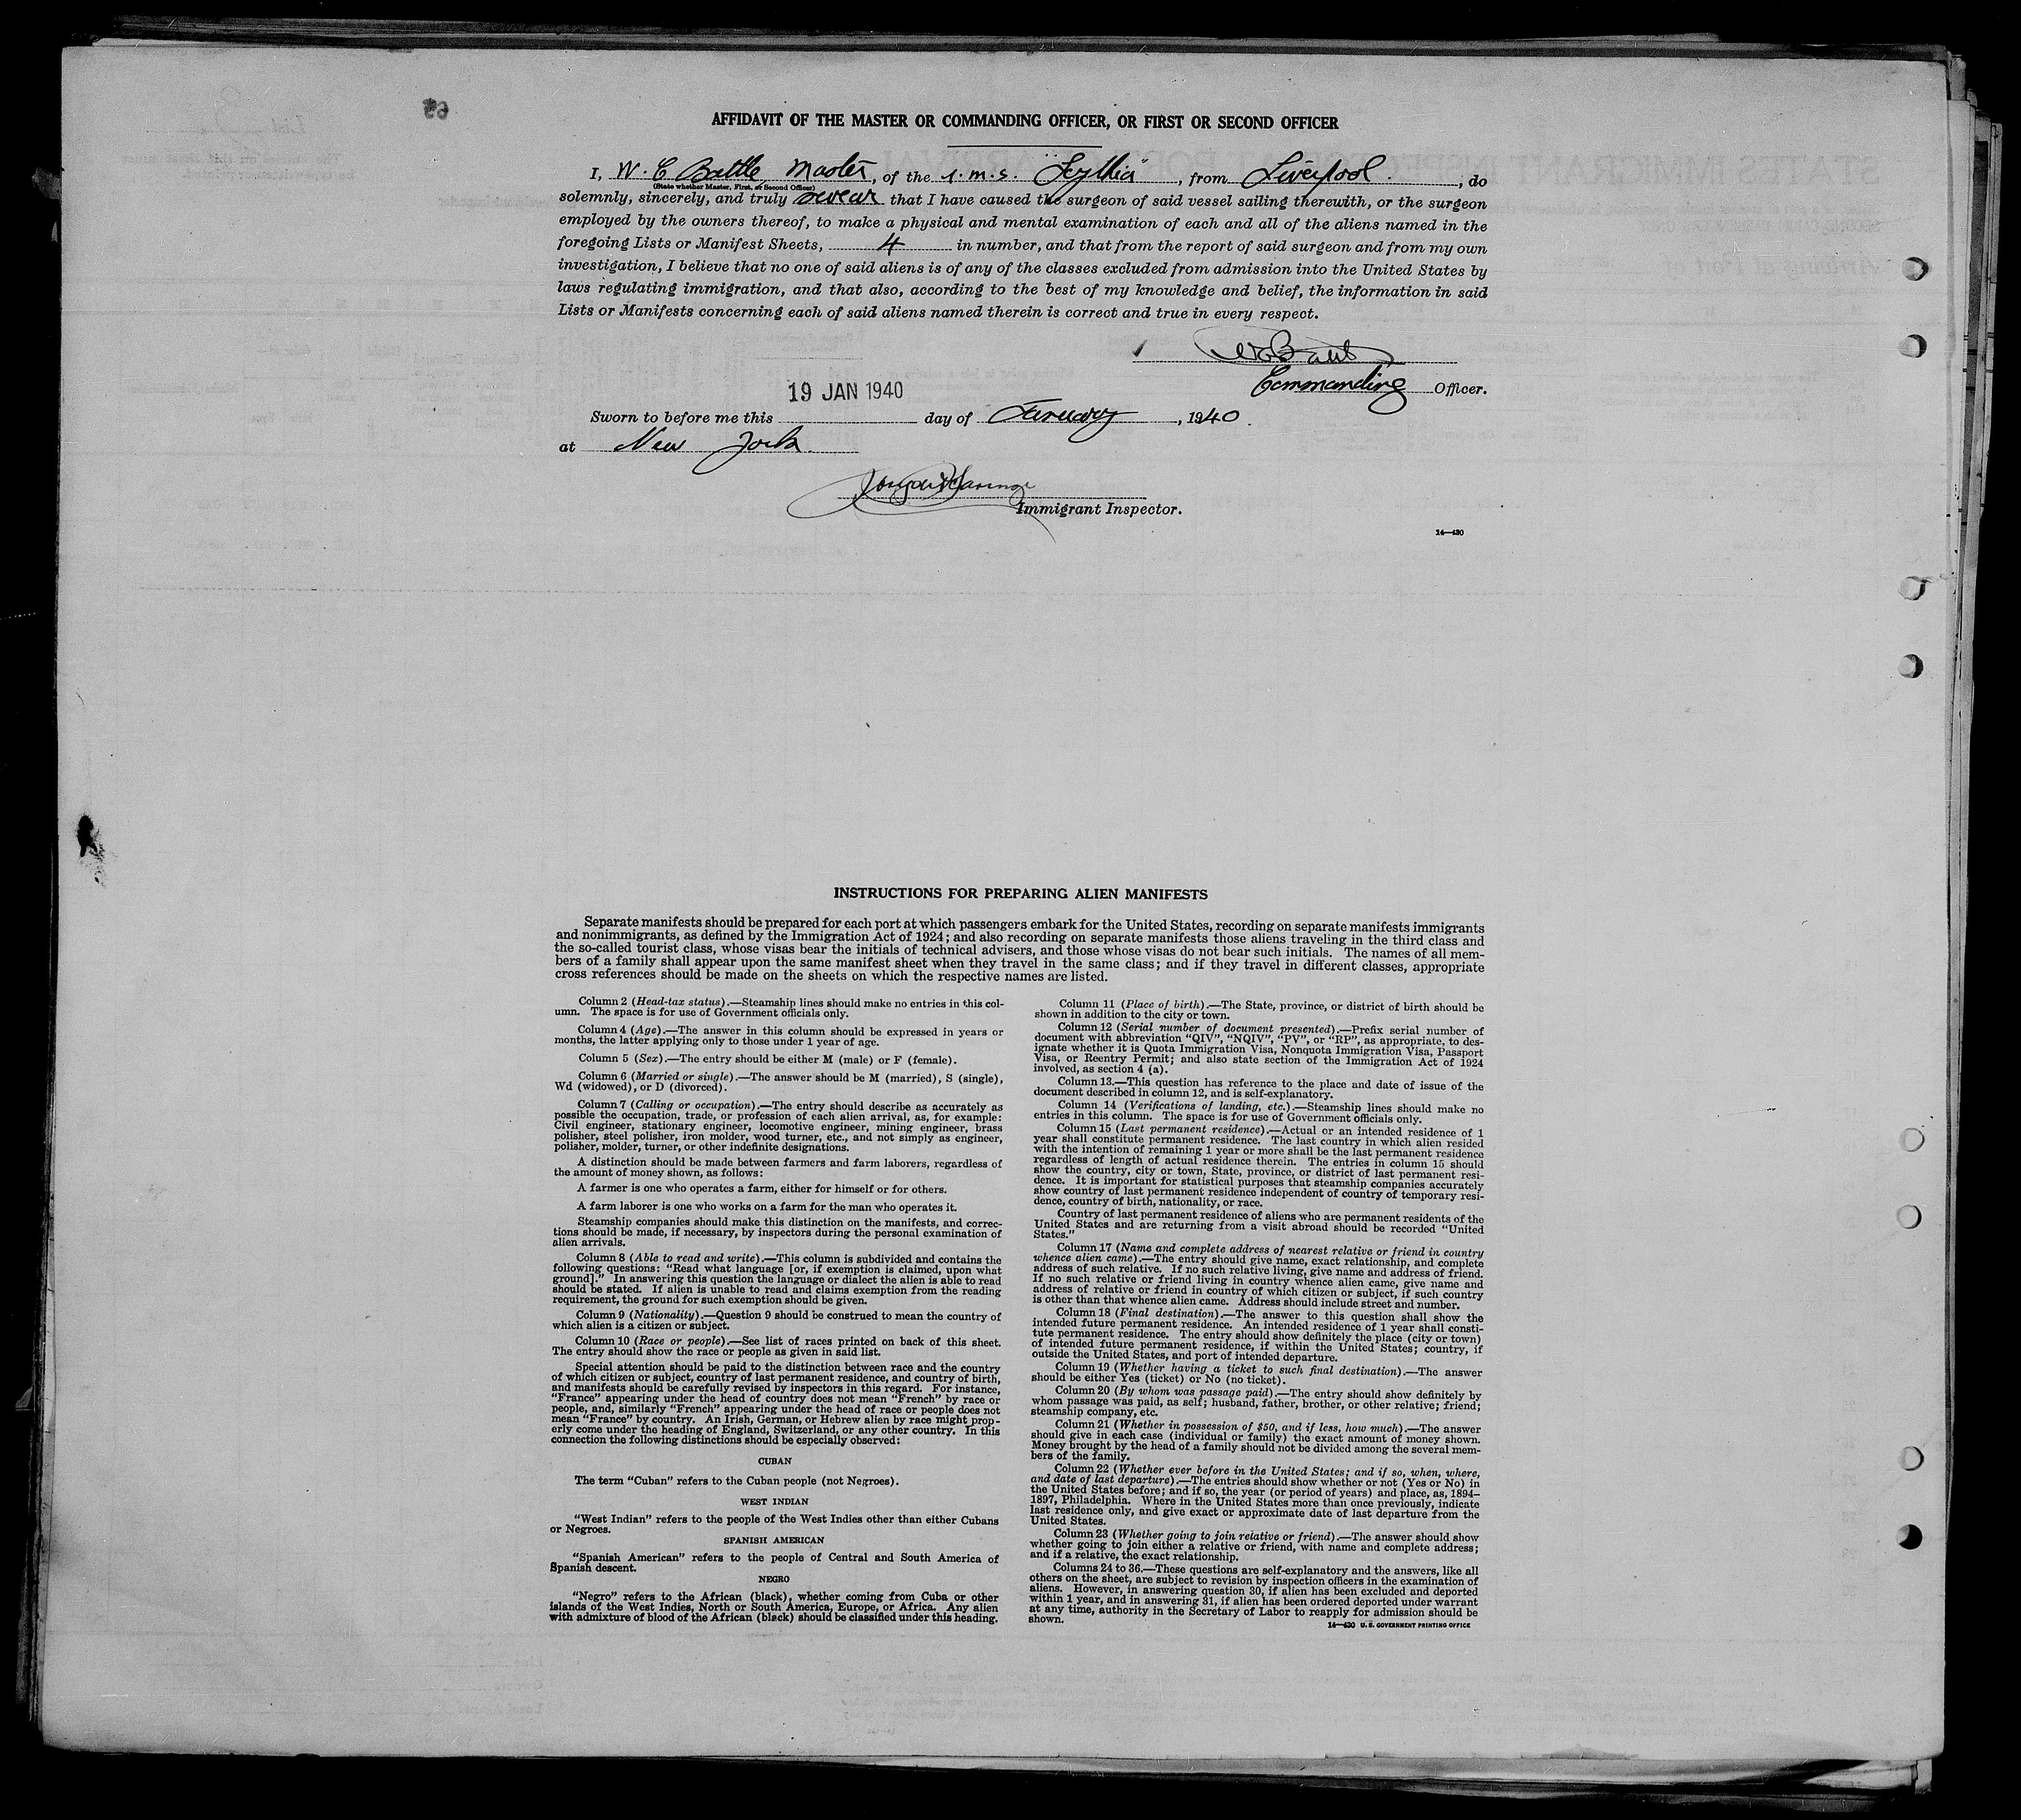 AFFIDAVIT OF THE MASTER OR COMMANDING OFFICER, OR FIRST OR SECOND OFFICER
I, W. C Battle Master, of the r.m.s. "Scythia", from Liverpool., do
(State whether Master, First, or Second Officer)
solemnly, sincerely, and truly swear that I have caused the surgeon of said vessel sailing therewith, or the surgeon
employed by the owners thereof, to make a physical and mental examination of each and all of the aliens named in the
foregoing Lists or Manifest Sheets, 4 in number, and that from the report of said surgeon and from my own
investigation, I believe that no one of said aliens is of any of the classes excluded from admission into the United States by
laws regulating immigration, and that also, according to the best of my knowledge and belief, the information in said
Lists or Manifests concerning each of said aliens named therein is correct and true in every respect.
Commanding Officer.
19 JAN 1940
Sworn to before me this day of January, 1940.
at New York.
Immigrant Inspector.
14—430
INSTRUCTIONS FOR PREPARING ALIEN MANIFESTS
Separate manifests should be prepared for each port at which passengers embark for the United States, recording on separate manifests immigrants
and nonimmigrants, as defined by the Immigration Act of 1924; and also recording on separate manifests those aliens traveling in the third class and
the so-called tourist class, whose visas bear the initials of technical advisers, and those whose visas do not bear such initials. The names of all mem-
bers of a family shall appear upon the same manifest sheet when they travel in the same class; and if they travel in different classes, appropriate
cross references should be made on the sheets on which the respective names are listed.
Column 2 (Head-tax status).—Steamship lines should make no entries in this col-
umn. The space is for use of Government officials only.
Column 4 (Age).—The answer in this column should be expressed in years or
months, the latter applying only to those under 1 year of age.
Column 5 (Sex).—The entry should be either M (male) or F (female).
Column 6 (Married or single).—The answer should be M (married), S (single),
Wd (widowed), or D (divorced).
Column 7 (Calling or occupation).—The entry should describe as accurately as
possible the occupation, trade, or profession of each alien arrival, as, for example:
Civil engineer, stationary engineer, locomotive engineer, mining engineer, brass
polisher, steel polisher, iron molder, wood turner, etc., and not simply as engineer,
polisher, molder, turner, or other indefinite designations.
A distinction should be made between farmers and farm laborers, regardless of
the amount of money shown, as follows:
A farmer is one who operates a farm, either for himself or for others.
A farm laborer is one who works on a farm for the man who operates it.
Steamship companies should make this distinction on the manifests, and correc-
tions should be made, if necessary, by inspectors during the personal examination of
alien arrivals.
Column 8 (Able to read and write).—This column is subdivided and contains the
following questions: "Read what language [or, if exemption is claimed, upon what
ground]." In answering this question the language or dialect the alien is able to read
should be stated. If alien is unable to read and claims exemption from the reading
requirement, the ground for such exemption should be given.
Column 9 (Nationality).—Question 9 should be construed to mean the country of
which alien is a citizen or subject.
Column 10 (Race or people).—See list of races printed on back of this sheet.
The entry should show the race or people as given in said list.
Special attention should be paid to the distinction between race and the country
of which citizen or subject, country of last permanent residence, and country of birth,
and manifests should be carefully revised by inspectors in this regard. For instance,
"France" appearing under the head of country does not mean "French" by race or
people, and, similarly "French" appearing under the head of race or people does not
mean "France" by country. An Irish, German, or Hebrew alien by race might prop-
erly come under the heading of England, Switzerland, or any other country. In this
connection the following distinctions should be especially observed:
CUBAN
The term "Cuban" refers to the Cuban people (not Negroes).
WEST INDIAN
"West Indian" refers to the people of the West Indies other than either Cubans
or Negroes.
SPANISH AMERICAN
"Spanish American" refers to the people of Central and South America of
Spanish descent.
NEGRO
"Negro" refers to the African (black), whether coming from Cuba or other
islands of the West Indies, North or South America, Europe, or Africa. Any alien
with admixture of blood of the African (black) should be classified under this heading.
Column 11 (Place of birth).—The State, province, or district of birth should be
shown in addition to the city or town.
Column 12 (Serial number of document presented).—Prefix serial number of
document with abbreviation "QIV", "NQIV", "PV", or "RP", as appropriate, to des-
ignate whether it is Quota Immigration Visa, Nonquota Immigration Visa, Passport
Visa, or Reentry Permit; and also state section of the Immigration Act of 1924
involved, as section 4 (a).
Column 13.—This question has reference to the place and date of issue of the
document described in column 12, and is self-explanatory.
Column 14 (Verifications of landing, etc.).—Steamship lines should make no
entries in this column. The space is for use of Government officials only.
Column 15 (Last permanent residence).—Actual or an intended residence of 1
year shall constitute permanent residence. The last country in which alien resided
with the intention of remaining 1 year or more shall be the last permanent residence
regardless of length of actual residence therein. The entries in column 15 should
show the country, city or town, State, province, or district of last permanent resi-
dence. It is important for statistical purposes that steamship companies accurately
show country of last permanent residence independent of country of temporary resi-
dence, country of birth, nationality, or race.
Country of last permanent residence of aliens who are permanent residents of the
United States and are returning from a visit abroad should be recorded "United
States."
Column 17 (Name and complete address of nearest relative or friend in country
whence alien came).—The entry should give name, exact relationship, and complete
address of such relative. If no such relative living, give name and address of friend.
If no such relative or friend living in country whence alien came, give name and
address of relative or friend in country of which citizen or subject, if such country
is other than that whence alien came. Address should include street and number.
Column 18 (Final destination).—The answer to this question shall show the
intended future permanent residence. An intended residence of 1 year shall consti-
tute permanent residence. The entry should show definitely the place (city or town)
of intended future permanent residence, if within the United States; country, if
outside the United States, and port of intended departure.
Column 19 (Whether having a ticket to such final destination).—The answer
should be either Yes (ticket) or No (no ticket).
Column 20 (By whom was passage paid).—The entry should show definitely by
whom passage was paid, as self; husband, father, brother, or other relative; friend;
steamship company, etc.
Column 21 (Whether in possession of $50, and if less, how much).—The answer
should give in each case (individual or family) the exact amount of money shown.
Money brought by the head of a family should not be divided among the several mem-
bers of the family.
Column 22 (Whether ever before in the United States; and if so, when, where,
and date of last departure).—The entries should show whether or not (Yes or No) in
the United States before; and if so, the year (or period of years) and place, as, 1894–
1897, Philadelphia. Where in the United States more than once previously, indicate
last residence only, and give exact or approximate date of last departure from the
United States.
Column 23 (Whether going to join relative or friend).—The answer should show
whether going to join either a relative or friend, with name and complete address;
and if a relative, the exact relationship.
Columns 24 to 36.—These questions are self-explanatory and the answers, like all
others on the sheet, are subject to revision by inspection officers in the examination of
aliens. However, in answering question 30, if alien has been excluded and deported
within 1 year, and in answering 31, if alien has been ordered deported under warrant
at any time, authority in the Secretary of Labor to reapply for admission should be
shown.
14—430 U. S. GOVERNMENT PRINTING OFFICE